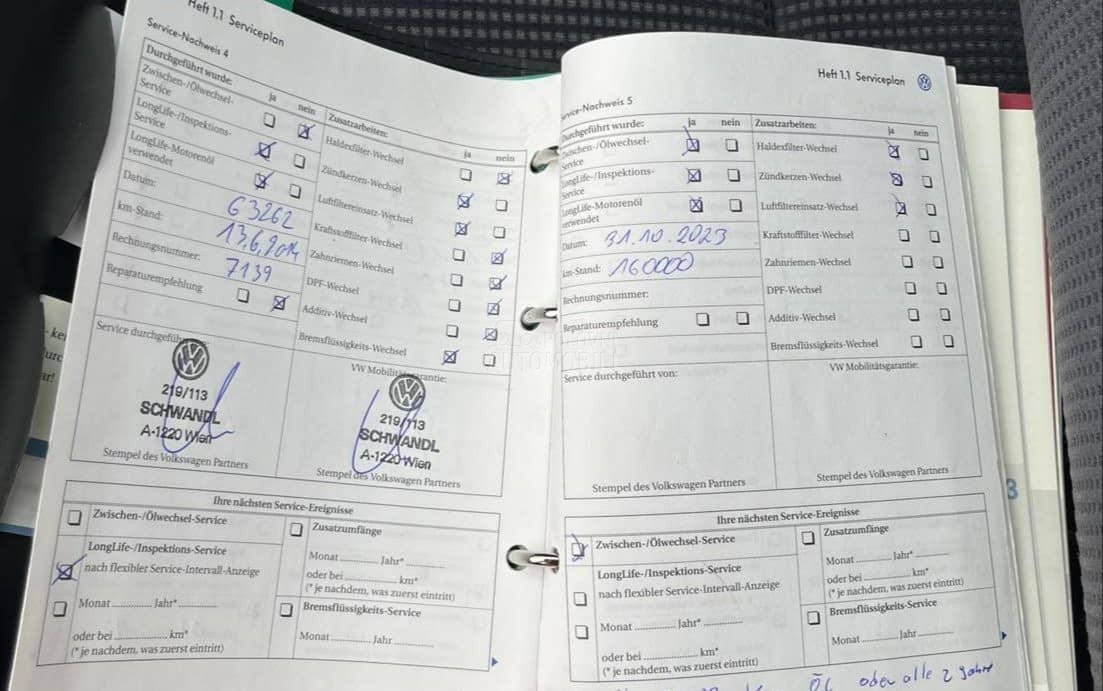 Heft 1.1 Serviceplan
Service-Nachweis 4
Durchgeführt wurde: ja nein
Zwischen-/Ölwechsel-
Service
LongLife-/Inspektions-
Service
LongLife-Motorenöl
verwendet
Datum: 63262
km-Stand: 13.6.2014
Rechnungsnummer: 7139
Reparaturempfehlung
Zusatzarbeiten: ja nein
Haldexfilter-Wechsel
Zündkerzen-Wechsel
Luftfiltereinsatz-Wechsel
Kraftstofffilter-Wechsel
Zahnriemen-Wechsel
DPF-Wechsel
Additiv-Wechsel
Bremsflüssigkeits-Wechsel
Service durchgeführt
219/113
SCHWANDL
A-1220 Wien
Stempel des Volkswagen Partners
VW Mobilitätsgarantie:
219/113
SCHWANDL
A-1220 Wien
Stempel des Volkswagen Partners
Ihre nächsten Service-Ereignisse
Zwischen-/Ölwechsel-Service
LongLife-/Inspektions-Service
nach flexibler Service-Intervall-Anzeige
Monat Jahr*
oder bei km*
(*je nachdem, was zuerst eintritt)
Zusatzumfänge
Monat Jahr*
oder bei km*
(*je nachdem, was zuerst eintritt)
Bremsflüssigkeits-Service
Monat Jahr
Heft 1.1 Serviceplan
Service-Nachweis 5
Durchgeführt wurde: ja nein
Zwischen-/Ölwechsel-
Service
LongLife-/Inspektions-
Service
LongLife-Motorenöl
verwendet
Datum: 31.10.2023
km-Stand: 160000
Rechnungsnummer:
Reparaturempfehlung
Zusatzarbeiten: ja nein
Haldexfilter-Wechsel
Zündkerzen-Wechsel
Luftfiltereinsatz-Wechsel
Kraftstofffilter-Wechsel
Zahnriemen-Wechsel
DPF-Wechsel
Additiv-Wechsel
Bremsflüssigkeits-Wechsel
Service durchgeführt von:
Stempel des Volkswagen Partners
VW Mobilitätsgarantie:
Stempel des Volkswagen Partners
Ihre nächsten Service-Ereignisse
Zwischen-/Ölwechsel-Service
LongLife-/Inspektions-Service
nach flexibler Service-Intervall-Anzeige
Monat Jahr*
oder bei km*
(*je nachdem, was zuerst eintritt)
Zusatzumfänge
Monat Jahr*
oder bei km*
(*je nachdem, was zuerst eintritt)
Bremsflüssigkeits-Service
Monat Jahr
ÖL oder alle 2 Jahre
3